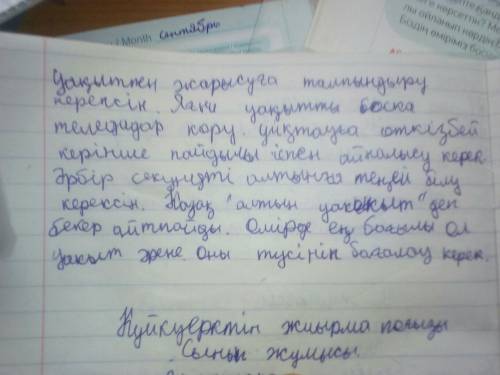 / Month сентябрь
Уақытпен жарысуға талпындыру
керексін. Яғни уақытты босқа
теледидар көру ұйқтауға өткізбей
керінше пайдалы іспен айналысу керек
Әрбір секундті алтынға теңей білу
керексін. Қазақ "алтын уақыт" деп
бекер айтпайды. Өмірде ең бағалы ол
уақыт және оны түсініп бағалау керек.
Күйкүеректін жиырма
Сынып жұмысы.